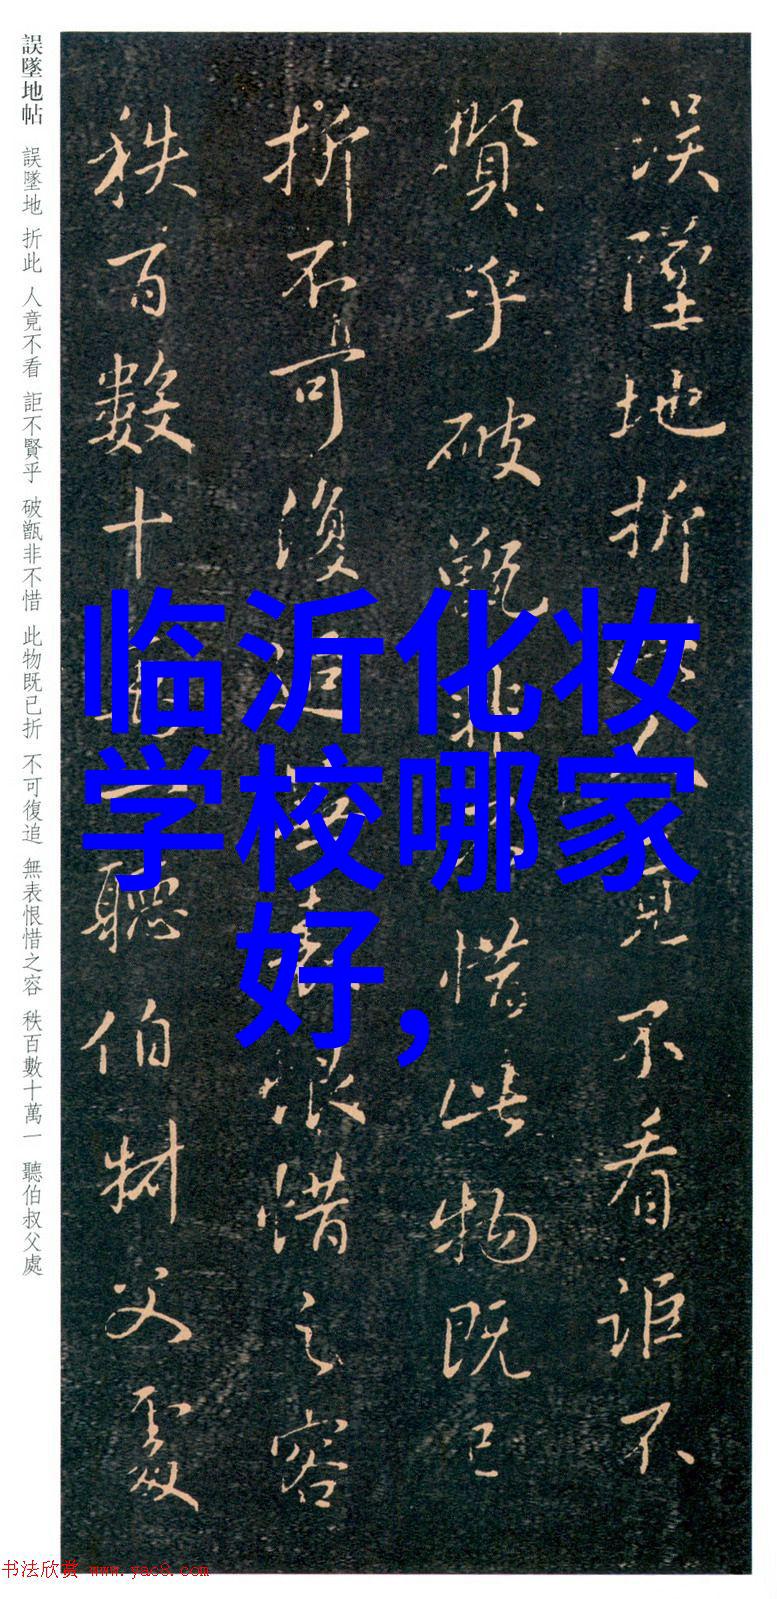 誤墜地折此人竟不看詎不
賢乎破甑非不惜此物既已
折不可復追無表恨惜之容
秩百數十萬一聽伯叔父處
誤墜地帖 誤墜地 折此 人竟不看 詎不賢乎 破甑非不惜 此物既已折 不可復追 無表恨惜之容 秩百數十萬一 聽伯叔父處
临沂化妆
学校哪家
好,
书法欣赏 www.yac8.com